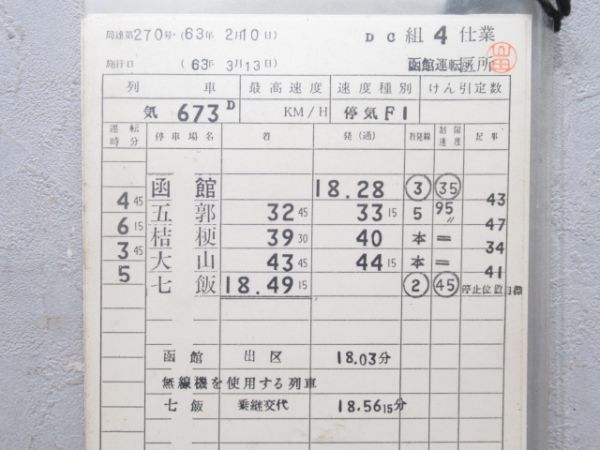 局達第270号・(63年 2月10日) DC組 4 仕業
施行日 (63年 3月13日) 函館運転区所
列車 最高速度 速度種別 けん引定数
気 673D KM/H 停気F1
運転時分 停車場名 着 発(通) 着発線 制限速度 記事
函館 18.28 ③ ㉟
4 45 43
五郭 32 45 33 15 5 95〃
6 15 47
桔梗 39 30 40 本 =
3 45 34
大山 43 45 44 15 本 =
5 41
七飯 18.49 15 ② ㊺ 停止位置目標
函館 出区 18.03分
無線機を使用する列車
七飯 乗継交代 18.56 15分